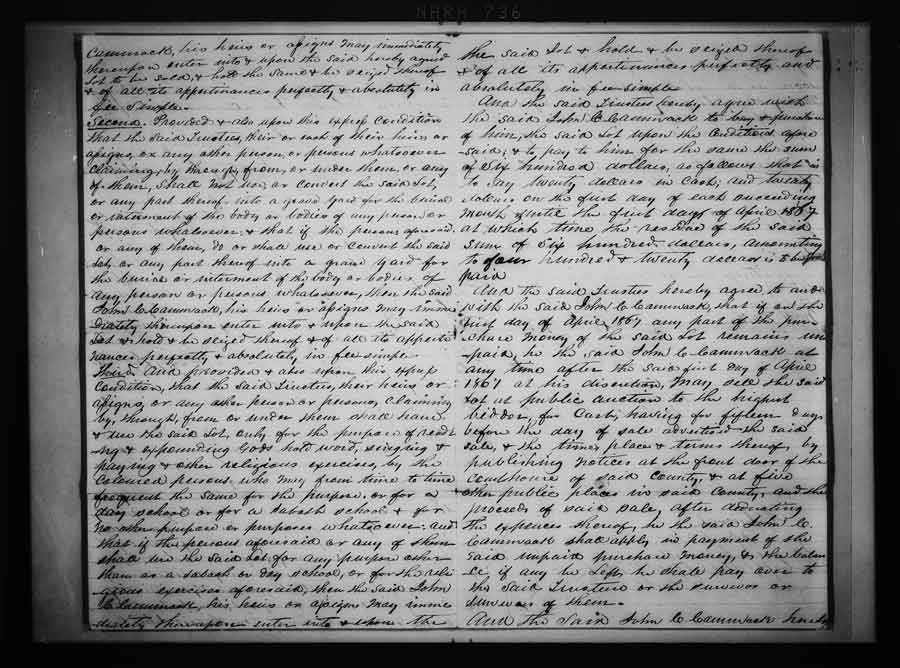 NARA 736
Cammack, his heirs or assigns may immediately
thereupon enter into & upon the said hereby agreed
Lot to be sold, & hold the same & be seized thereof
& of all its appertinances perfectly & absolutely in
fee simple.
Second. Provided & also upon this express Condition
that the said Trustees, their or each of their heirs or
assigns, or any other person or persons whatsoever
claiming by, through, from, or under them, or any
of them, shall not use, or convert the said Lot,
or any part thereof into a grave yard for the burial
or interment of the body or bodies of any person or
persons whatsoever, & that if the persons aforesaid
or any of them, do or shall use or convert the said
Lot, or any part thereof into a grave yard for
the burial or interment of the body or bodies of
any person or persons whatsoever, then the said
John C Cammack, his heirs or assigns may imme
diately thereupon enter into & upon the said
Lot & hold & be seized thereof & of all its apperti
nances perfectly & absolutely in fee simple
Third And provided & also upon this express
Condition, that the said Trustees, their heirs or
assigns, or any other person or persons, claiming
by, through, from or under them shall have
& use the said Lot, only for the purpose of read
ing & expounding Gods holy word, singing &
praying & other religious exercises, by the
Coloured persons who may from time to time
frequent the same for the purpose, or for a
day school or for a sabath school & for
no other purpose or purposes whatsoever; and
that if the persons aforesaid or any of them
shall use the said Lot for any purpose other
than as a sabath or day school, or for the reli
gious exercises aforesaid, then the said John
C Cammack, his heirs or assigns may imme
diately thereupon enter into & upon the
the said Lot & hold & be seized thereof
& of all its appertinances perfectly and
absolutely in fee simple
And the said Trustees hereby agree with
the said John C Cammack to buy & purchase
of him, the said Lot upon the Conditions afore
said, & to pay to him for the same the sum
of Six hundred dollars, as follows that is
to say twenty dollars in Cash, and twenty
dollars on the first day of each succeeding
month until the first day of April 1867
at which time the residue of the said
sum of Six hundred dollars, amounting
to four hundred & twenty dollars is to be
paid
And the said Trustees hereby agree to and
with the said John C Cammack, that if on the
first day of April 1867 any part of the pur
chase money of the said Lot remains un
paid, he the said John C Cammack at
any time after the said first day of April
1867 at his discretion, may sell the said
Lot at public auction to the highest
bidder, for Cash, having for fifteen days
before the day of sale advertised the said
sale, & the time, place & terms thereof, by
publishing notices at the front door of the
Courthouse of said County, & at five
other public places in said County, and the
proceeds of said sale, after deducting
the expences thereof, he the said John C.
Cammack shall apply in payment of the
said unpaid purchase money, & the balan
ce if any be left, he shall pay over to
the said Trustees or the survivor or
survivors of them.
And the said John C Cammack hereby